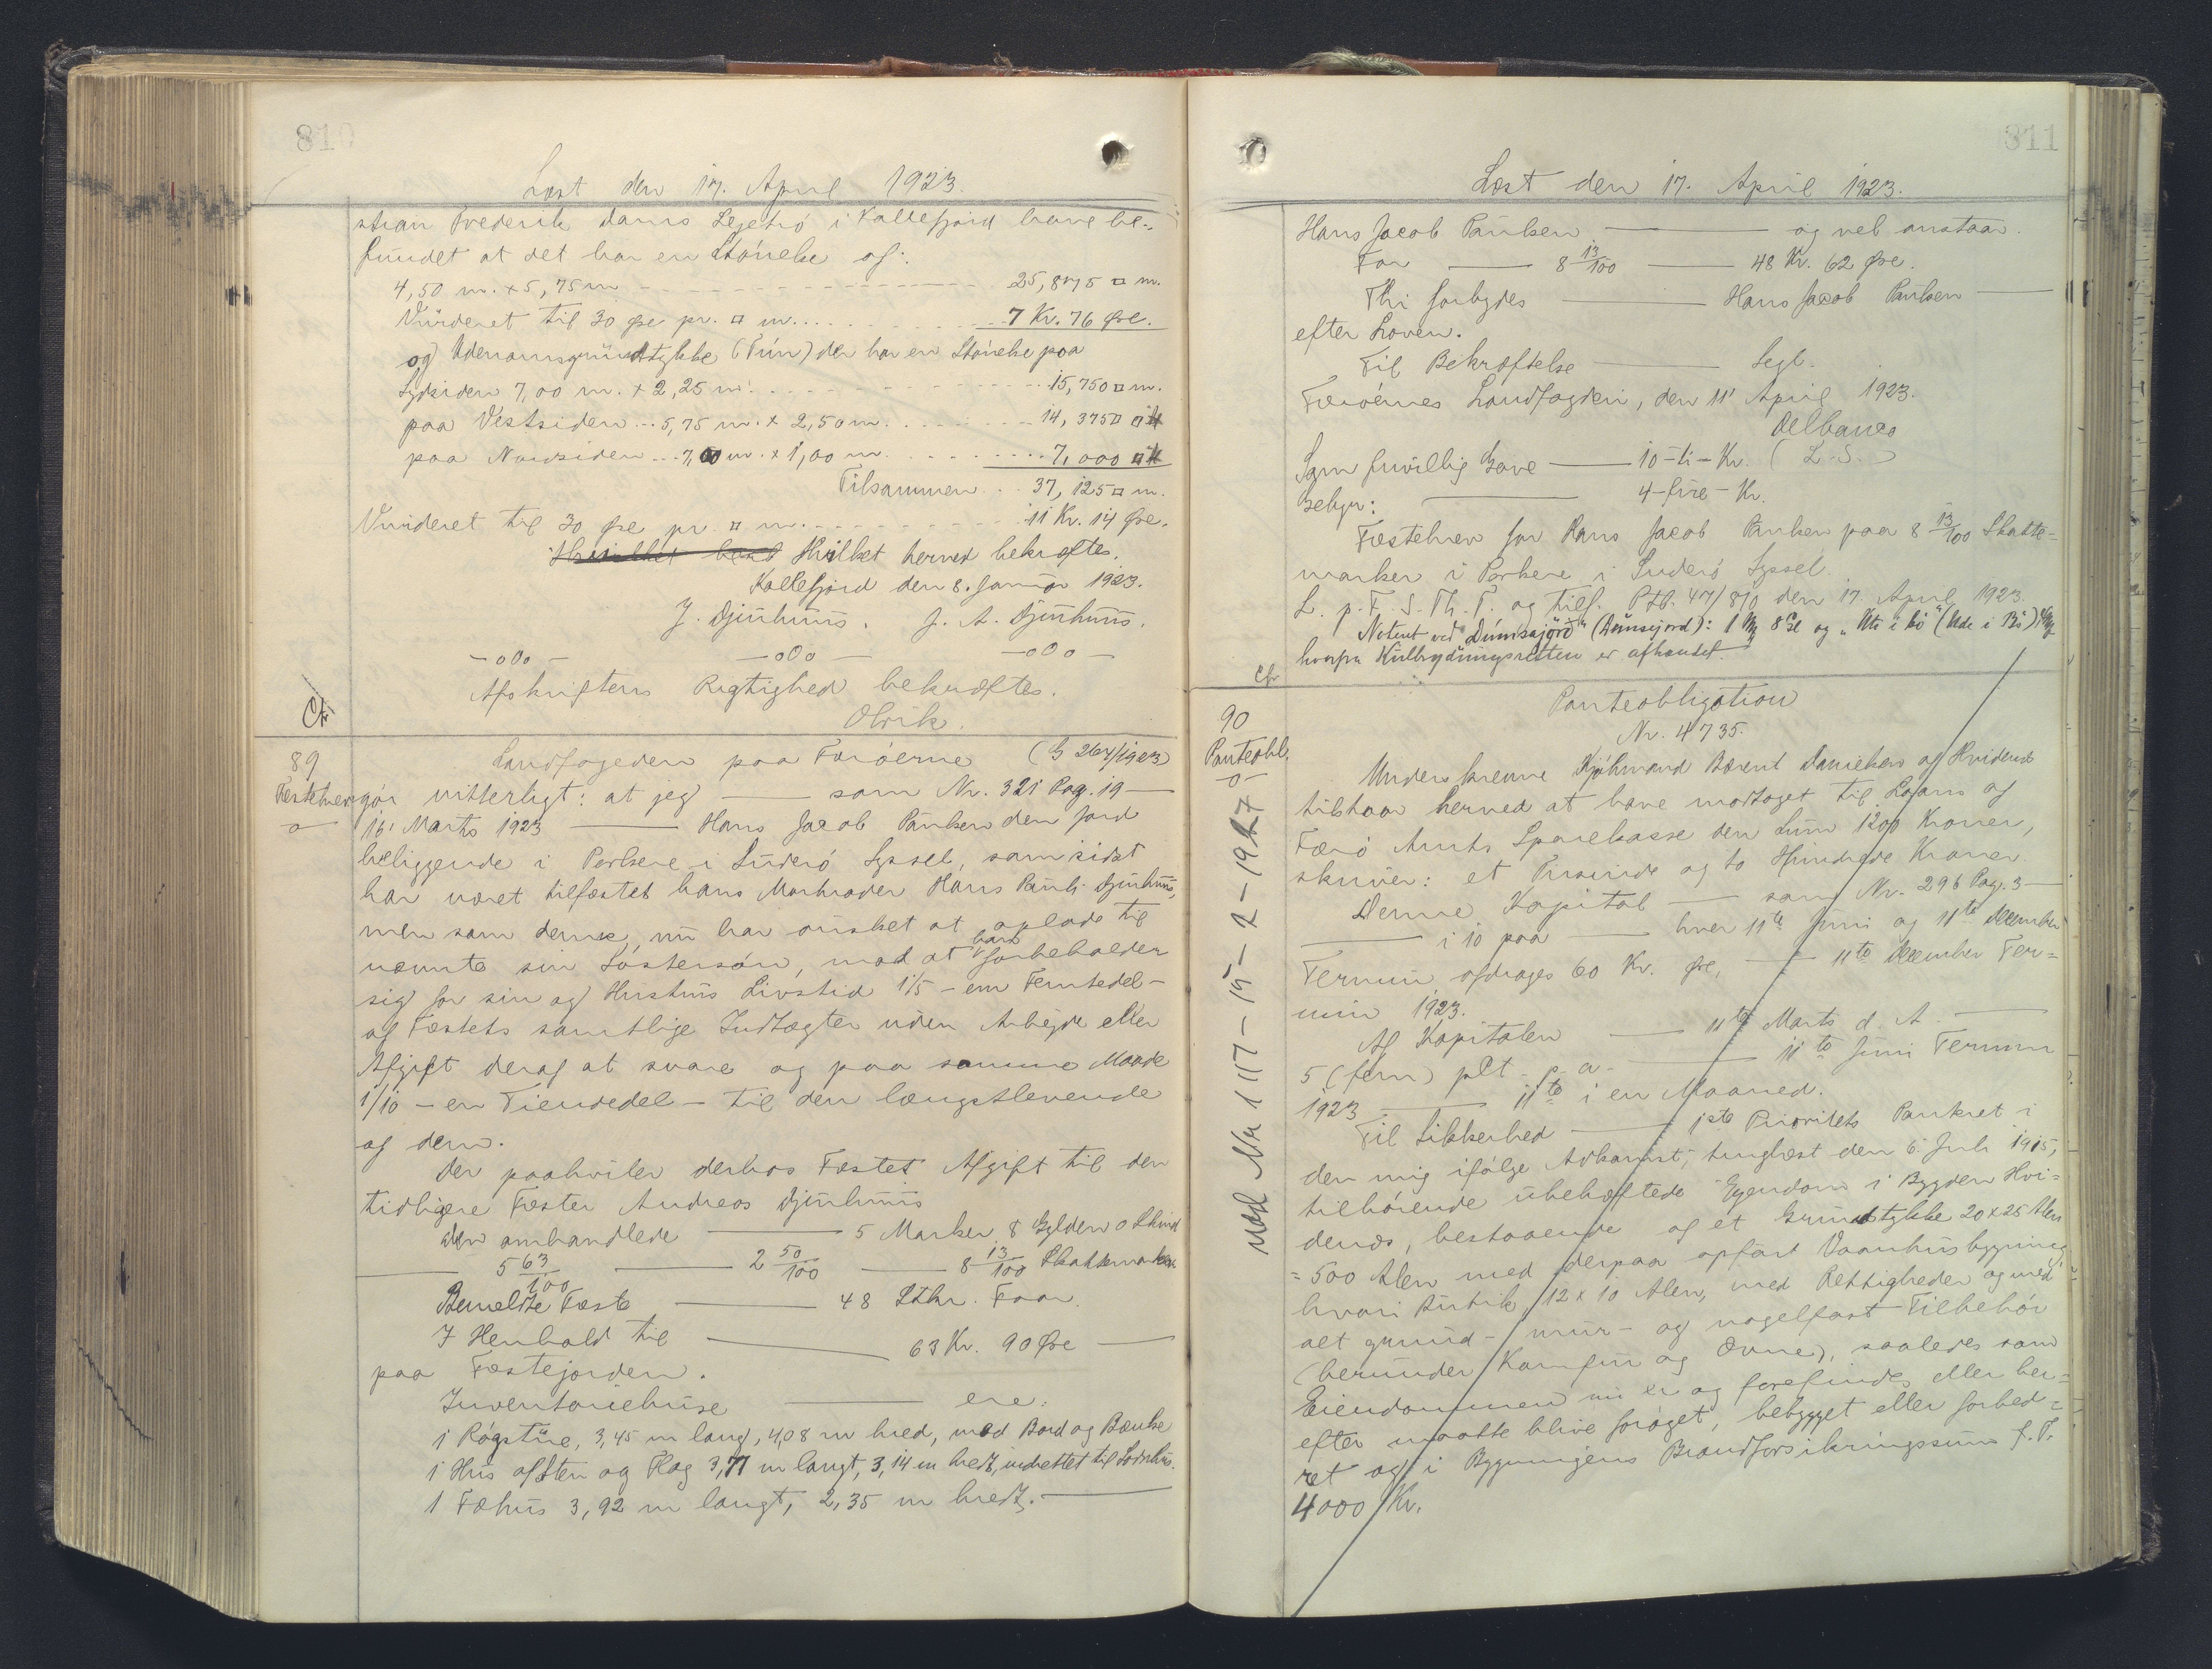 810
Læst den 17. April 1923.
stian Frederik Dams Lejetrö i Kollefjord have be-
fundet at det har en Störrelse af:
4,50 m. x 5,75 m - - - 25,875 □ m.
Vurderet til 30 Øre pr. □ m. . . . 7 Kr. 76 Øre.
og Udenomsgrundstykke (Tún) der har en Störrelse paa
Sydsiden 7,00 m. x 2,25 m. - - - 15,750 □ m.
paa Vestsiden - - 5,75 m. x 2,50 m. . . . 14,375 □ m
paa Nordsiden - - 7,00 m. x 1,00 m. . . . 7,000 □ m
Tilsammen . . 37,125 □ m.
Vurderet til 30 Øre pr. □ m. - - - 11 Kr. 14 Øre.
Hvilket herved bekræftes.
Kollefjord den 8. Januar 1923.
J. Djurhuus. J. A. Djurhuus.
-oOo- -oOo- -oOo-
Afskriftens Rigtighed bekræftes.
Olrik.
Cfr
89
Landfogeden paa Færöerne (G 264/1923)
Fæstebrev gör vitterligt: at jeg — som Nr. 321 Pag. 19 —
16' Marts 1923 — Hans Jacob Paulsen den Jord
beliggende i Porkere i Suderö Syssel, som sidst
har været tilfæstet hans Morbroder Hans Pauli Djurhuus,
men som denne, nu har önsket at oplade til
nævnte sin Söstersön, mod at han forbeholder
sig for sin og Hustrus Livstid 1/5 - en Femtedel -
af Fæstets samtlige Indtægter uden Arbejde eller
Afgift deraf at svare og paa samme Maade
1/10 - en Tiendedel - til den længstlevende
af dem.
Der paahviler derhos Fæstet Afgift til den
tidligere Fæster Andreas Djurhuus
den omhandlede — 5 Marker 8 Gylden 0 Skind
— 5 63/100 — 2 50/100 — 8 13/100 Skattemarker
Bemeldte Fæste — 48 Stkr. Faar.
I Henhold til — 63 Kr. 90 Øre —
paa Fæstejorden.
Inventariehuse — ere:
1 Rögstue, 3,45 m lang, 4,08 m bred, med Bord og Bænke
1 Hus af Sten og Flag 3,77 m langt, 3,14 m bredt, indrettet til Sodnhus.
1 Fæhus 3,92 m langt, 2,35 m bredt. —
811
Læst den 17. April 1923.
Hans Jacob Paulsen — og vel anstaar.
For — 8 13/100 — 48 Kr. 62 Øre.
Thi forbydes — Hans Jacob Paulsen —
efter Loven.
Til Bekræftelse — Segl.
Færöernes Landfogderi, den 11' April 1923.
Delbanco
Som frivillig Gave — 10 - ti - Kr. (L. S.)
Gebyr: — 4 - fire - Kr.
Fæstebrev for Hans Jacob Paulsen paa 8 13/100 Skatte=
marker i Porkere i Suderö Syssel.
L. p. F. S. Th. T. og tilf. Ptb. 47/810 den 17. April 1923.
Noteret ved "Dúnsajörð" (Dunsejord): 1 Mk 8 Gl og "Uti i bö" (Ude i Bö)
hvorfra Kulbrydningsretten er afhændet.
Cfr
90
Panteobl.
Panteobligation
Nr. 4735.
Underskrevne Kjöbmand Bærent Danielsen af Hvidenæs
tilstaar herved at have modtaget til Laans af
Færö Amts Sparekasse den Sum 1200 Kroner,
skriver: et Tusinde og to Hundrede Kroner.
Denne Kapital — som Nr. 296 Pag. 3 —
— i 10 paa — hver 11te Juni og 11te December
Termin afdrages 60 Kr. Øre, — 11te December Ter=
min 1923.
Af Kapitalen — 11te Marts d. A. —
5 (fem) pCt. p. a. — 11te Juni Termin
1923 — 11te i en Maaned.
Til Sikkerhed — 1ste Prioritets Panteret i
den mig ifölge Adkomst, tinglæst den 6. Juli 1915,
tilhörende ubehæftede Ejendom i Bygden Hvi=
denæs, bestaaende af et Grundstykke 20 x 25 Alen
= 500 Alen med derpaa opfört Vaanhusbygning,
hvori Butik, 12 x 10 Alen, med Rettigheder og med
alt grund- mur- og nagelfast Tilbehör
(herunder Komfur og Ovne), saaledes som
Eiendommen nu er og forefindes eller her=
efter maatte blive foröget, bebygget eller forbed=
ret og i Bygningens Brandforsikringssum f. T.
4000 Kr.